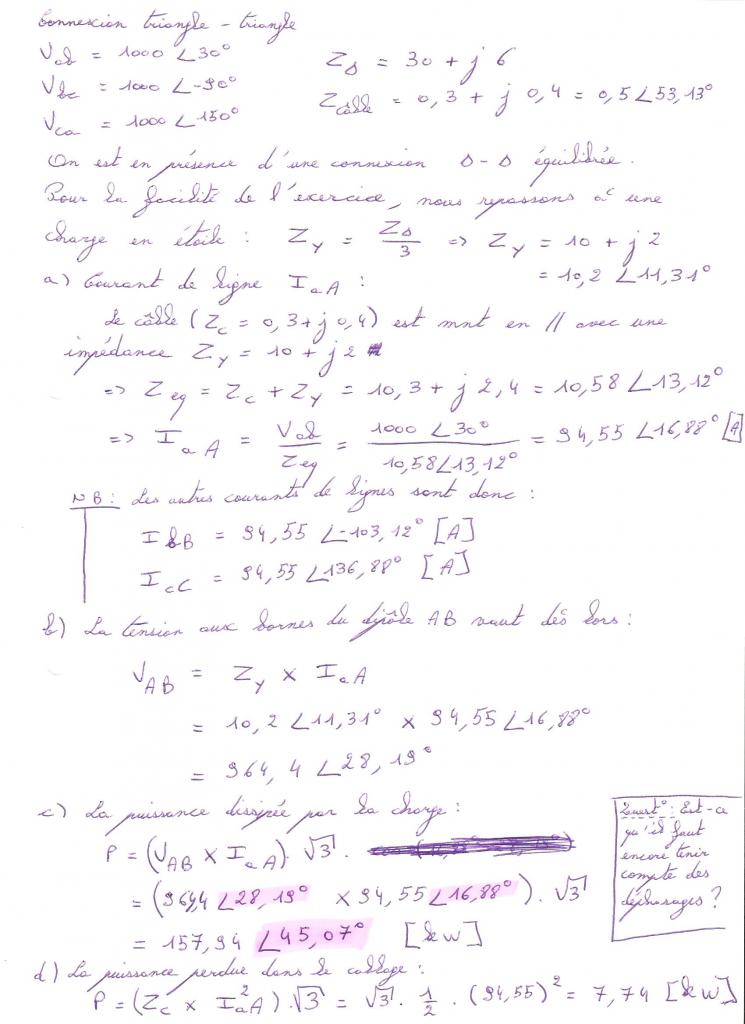 Connexion triangle - triangle
Vab = 1000 ∠30°
Vbc = 1000 ∠-90°
Vca = 1000 ∠150°
ZΔ = 30 + j 6
Zcâble = 0,3 + j 0,4 = 0,5 ∠53,13°
On est en présence d'une connexion Δ-Δ équilibrée.
Pour la facilité de l'exercice, nous repassons à une
charge en étoile : ZY = ZΔ/3 => ZY = 10 + j 2
= 10,2 ∠11,31°
a) Courant de ligne IaA :
Le câble (Zc = 0,3 + j 0,4) est mnt en // avec une
impédance ZY = 10 + j 2
=> Zeq = Zc + ZY = 10,3 + j 2,4 = 10,58 ∠13,12°
=> IaA = Vab/Zeq = 1000 ∠30°/10,58 ∠13,12° = 94,55 ∠16,88° [A]
NB : Les autres courants de lignes sont donc :
IbB = 94,55 ∠-103,12° [A]
IcC = 94,55 ∠136,88° [A]
b) La tension aux bornes du dipôle AB vaut dès lors :
VAB = ZY x IaA
= 10,2 ∠11,31° x 94,55 ∠16,88°
= 964,4 ∠28,19°
c) La puissance dissipée par la charge :
P = (VAB x IaA) . √3 .
= (964,4 ∠28,19° x 94,55 ∠16,88°) . √3
= 157,94 ∠45,07° [kW]
Quest° : Est-ce
qu'il faut
encore tenir
compte des
déphasages ?
d) La puissance perdue dans le cablage :
P = (Zc x I²aA) . √3 = √3 . 1/2 . (94,55)² = 7,74 [kW]